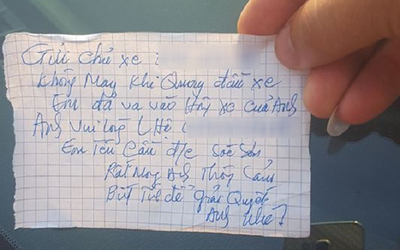 Gửi chủ xe :
Không May khi Quay đầu xe
Em đã va vào Hông xe của Anh
Anh vui lòng LHệ :
Em Tên Cần đ/c Sóc Sơn
Rất Mong Anh Thông Cảm
Bớt Tí để giải Quyết
Anh nhé?